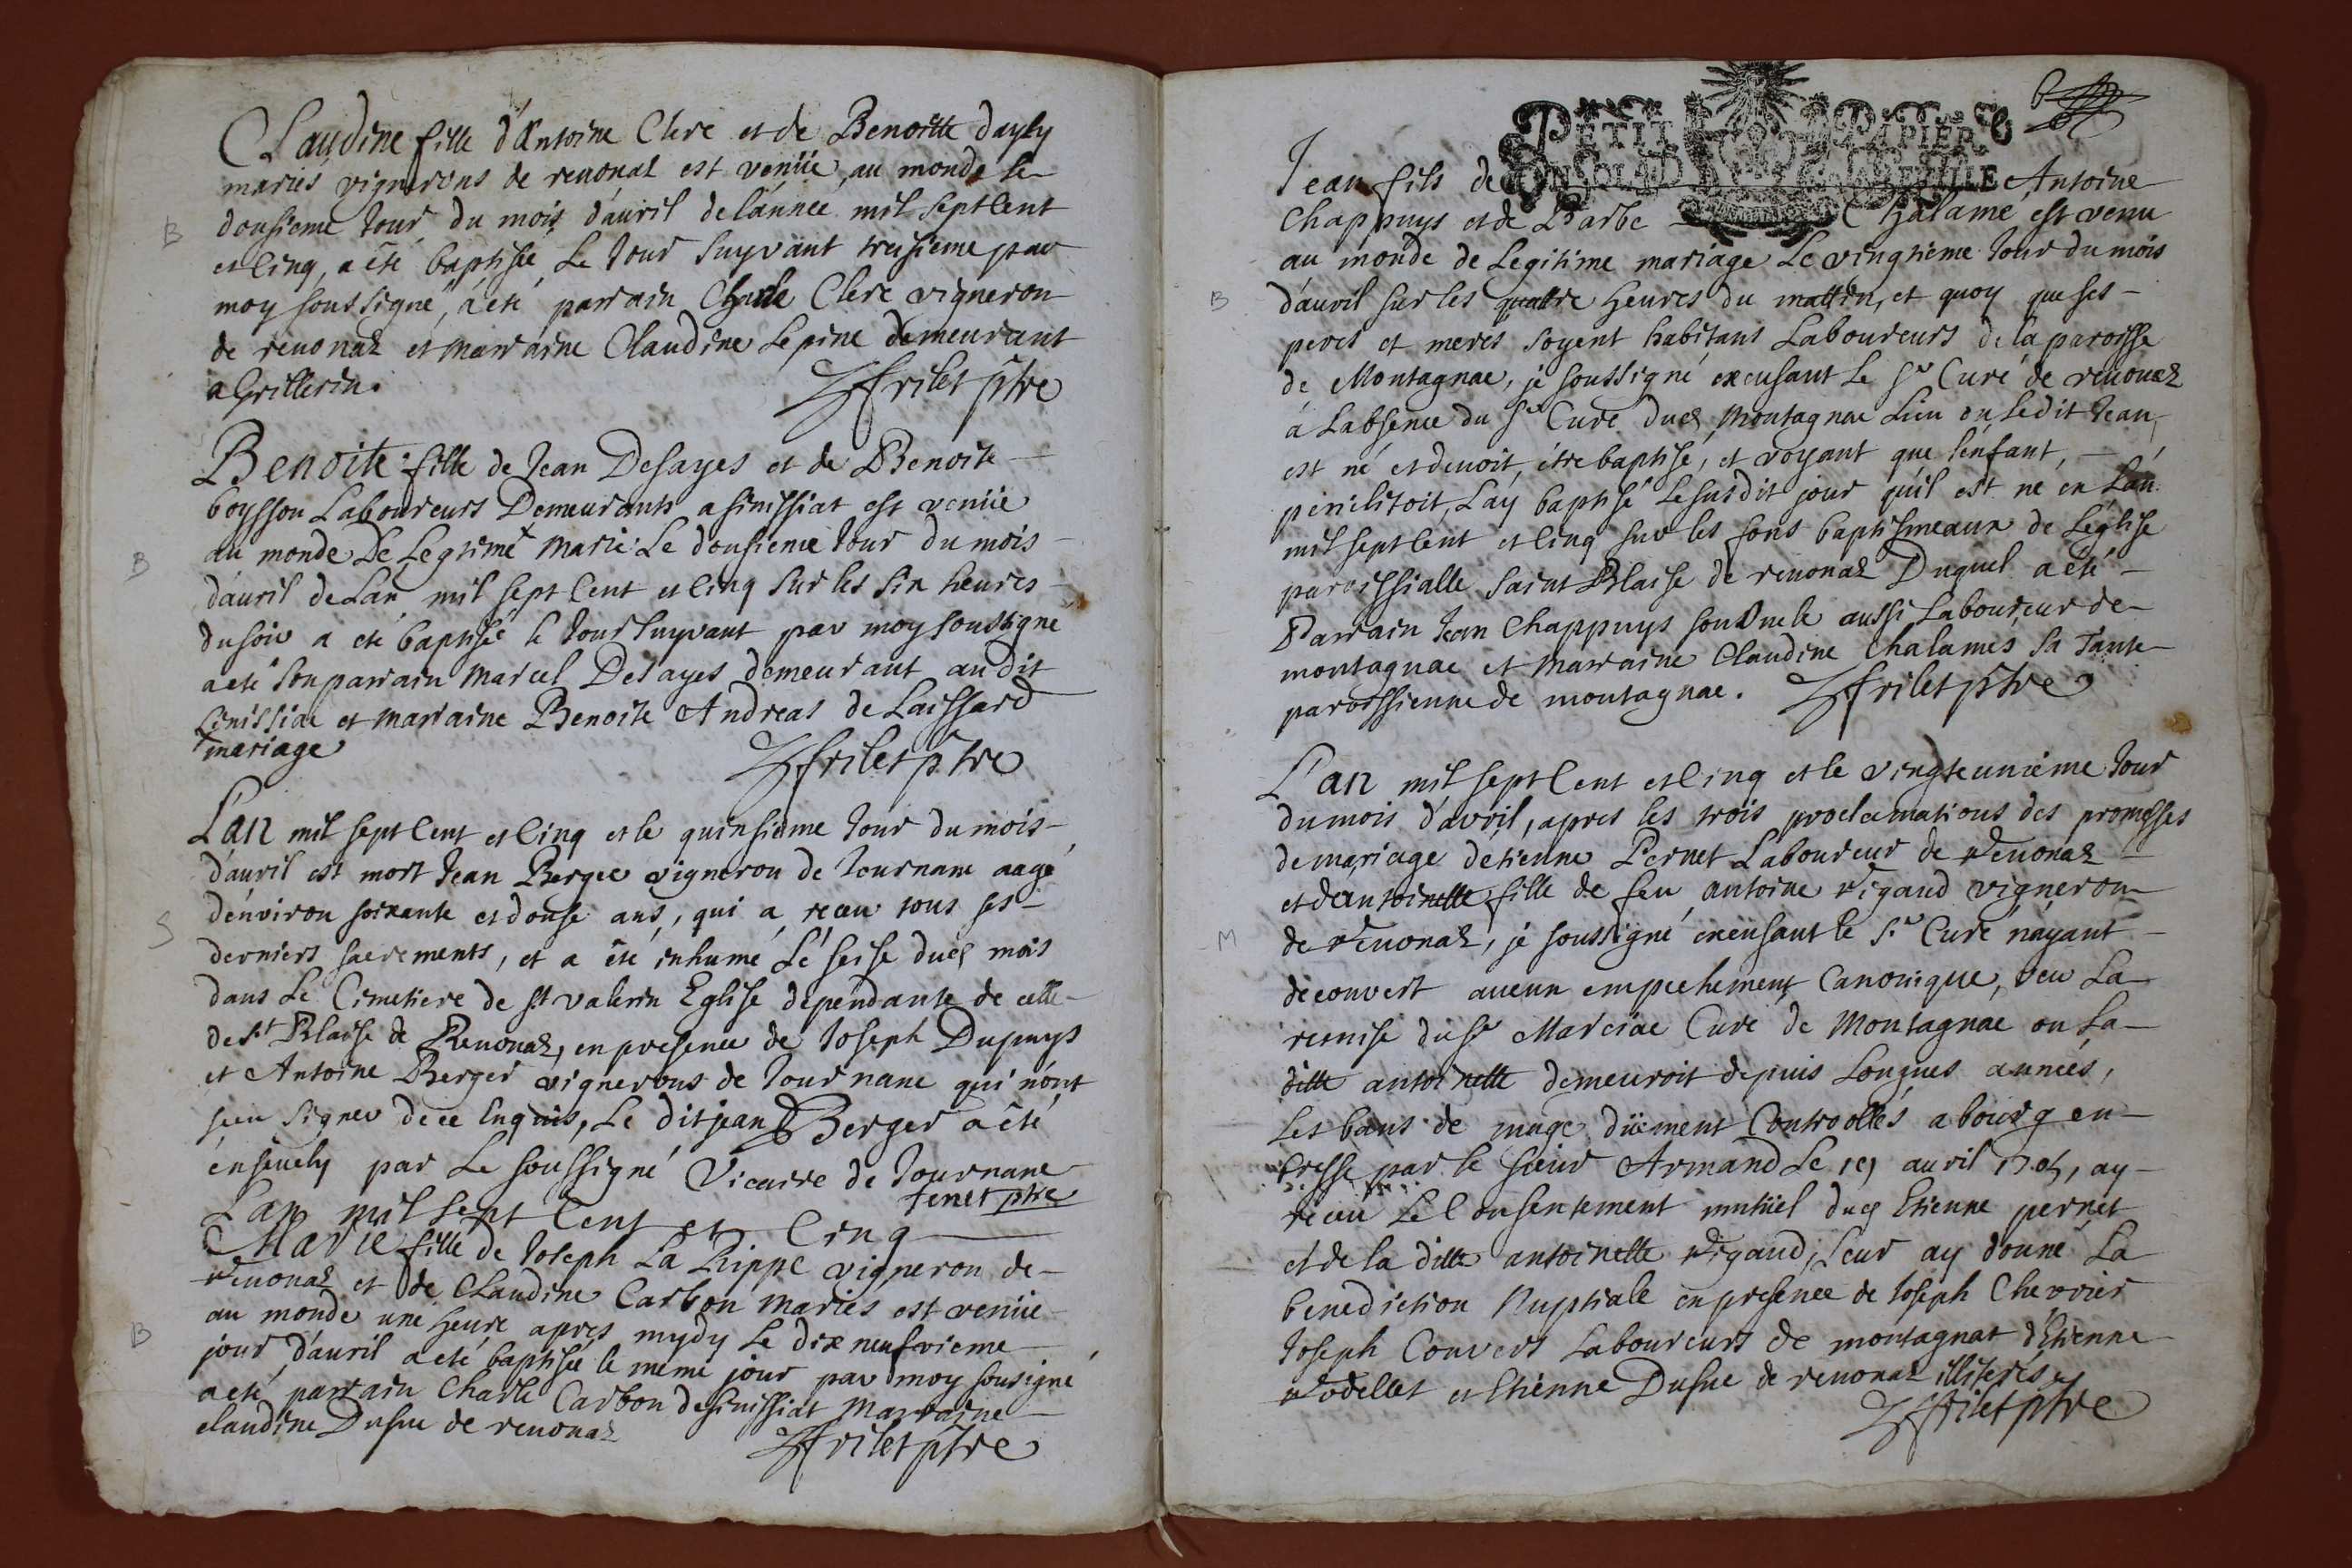 Claudine fille d'Antoine Clere et de Benoitte dayly
mariés vignerons de reuonaz est venüe au monde le
dousieme Jour du mois d'auril de l'année mil sept Cent
B
et Cinq, a été baptisée Le Jour suyvant treisieme par
moy soussigné, a eté parrain Charle Clere vigneron
de reuonaz et marraine Claudine Lepine demeurant
a Grillerin.
frilet ptre
Benoite fille de Jean Desayes et de Benoite
boysson Laboureurs Demeurants a sinissiat est venüe
au monde De Legitime + marié Le dousieme Jour du mois
B
d'auril de Lan mil sept Cent et Cinq sur les six heures
du soir a eté baptisée le Jour suyvant par moy soussigné
a eté son parrain Marcel Desayes demeurant au dit
Cinissiac et marraine Benoite Andreas de Laissard
+ mariage
frilet ptre
L'an mil sept Cent et Cinq et le quinsieme Jour du mois
d'auril est mort Jean Berger vigneron de Journanc aagé
d'environ soixante et douse ans, qui a receu tous ses
S
derniers sacrements, et a été inhumé Le seise dud mois
dans Le Cimetiere de st valerin Eglise dependante de celle
de St Blaise de Reuonaz, en presence de Joseph Dupuys
et Antoine Berger vignerons de Journanc qui n'ont
sceu signer de ce Enquis, Le dit jean Berger a été
ensevely par Le soussigné Vicaire de Journanc
tenet ptre
L'an mil sept Cent et Cinq
Marie fille de Joseph La Rippe vigneron de
reuonaz et de Claudine Carbon mariés est venüe
au monde une heure apres mydy Le dix neufvieme
B
jour d'auril a eté baptisée le meme jour par moy sousigné
a eté parrain Charle Carbon de sinissiat marraine
claudine Dufue de reuonaz
frilet ptre
PETIT PAPIER
Jean fils de Antoine
Chappuys et de Barbe Chalamé est venu
au monde de Legitime mariage Le vingtieme Jour du mois
B
d'auril sur les quattre heures du mattin, et quoy que ses
peres et meres soyent habitans Laboureurs de la paroisse
de Montagnac, je soussigné excusant Le sr Curé de reuonaz
a Labsence du sr Curé dud Montagnac Lieu ou Ledit Jean
est né et deuoit être baptisé, et voyant que l'enfant,
periclitoit, Lay baptisé Le susdit jour qu'il est né en Lan
mil sept Cent et Cinq sur les fons baptismeaux de L'église
paroissialle saint Blaise de reuonaz Duquel a eté
Parrain Jean Chappuys son Oncle aussi Laboureur de
montagnac et marraine Claudine Chalames sa Tante
paroissienne de montagnac.
frilet ptre
L'an mil sept Cent et Cinq et le vingt eunieme Jour
du mois d'avril, apres les trois proclamations des promesses
de mariage d'etienne Pernet Laboureur de Reuonaz
et d'antoinette fille de feu antoine Rigaud vigneron
M
de Reuonaz, je soussigné excusant le sr Curé n'ayant
decouvert aucun empechement Canonique, veu La
remise du sr Marciac Curé de Montagnac ou La
ditte antoinette demeuroit depuis Longues années,
Les bans de mage düement Controollés a bourg en
bresse par le sieur Armand Le auril 1705, ay
receu Le Consentement mutüel dud Etienne pernet
et de la ditte antoinette Rigaud, Leur ay donné La
benediction Nuptiale en presence de Joseph Chevrier
Joseph Convers Laboureurs de montagnat d'Etienne
Rodellet et Etienne Dufue de reuonaz illiterés
frilet ptre